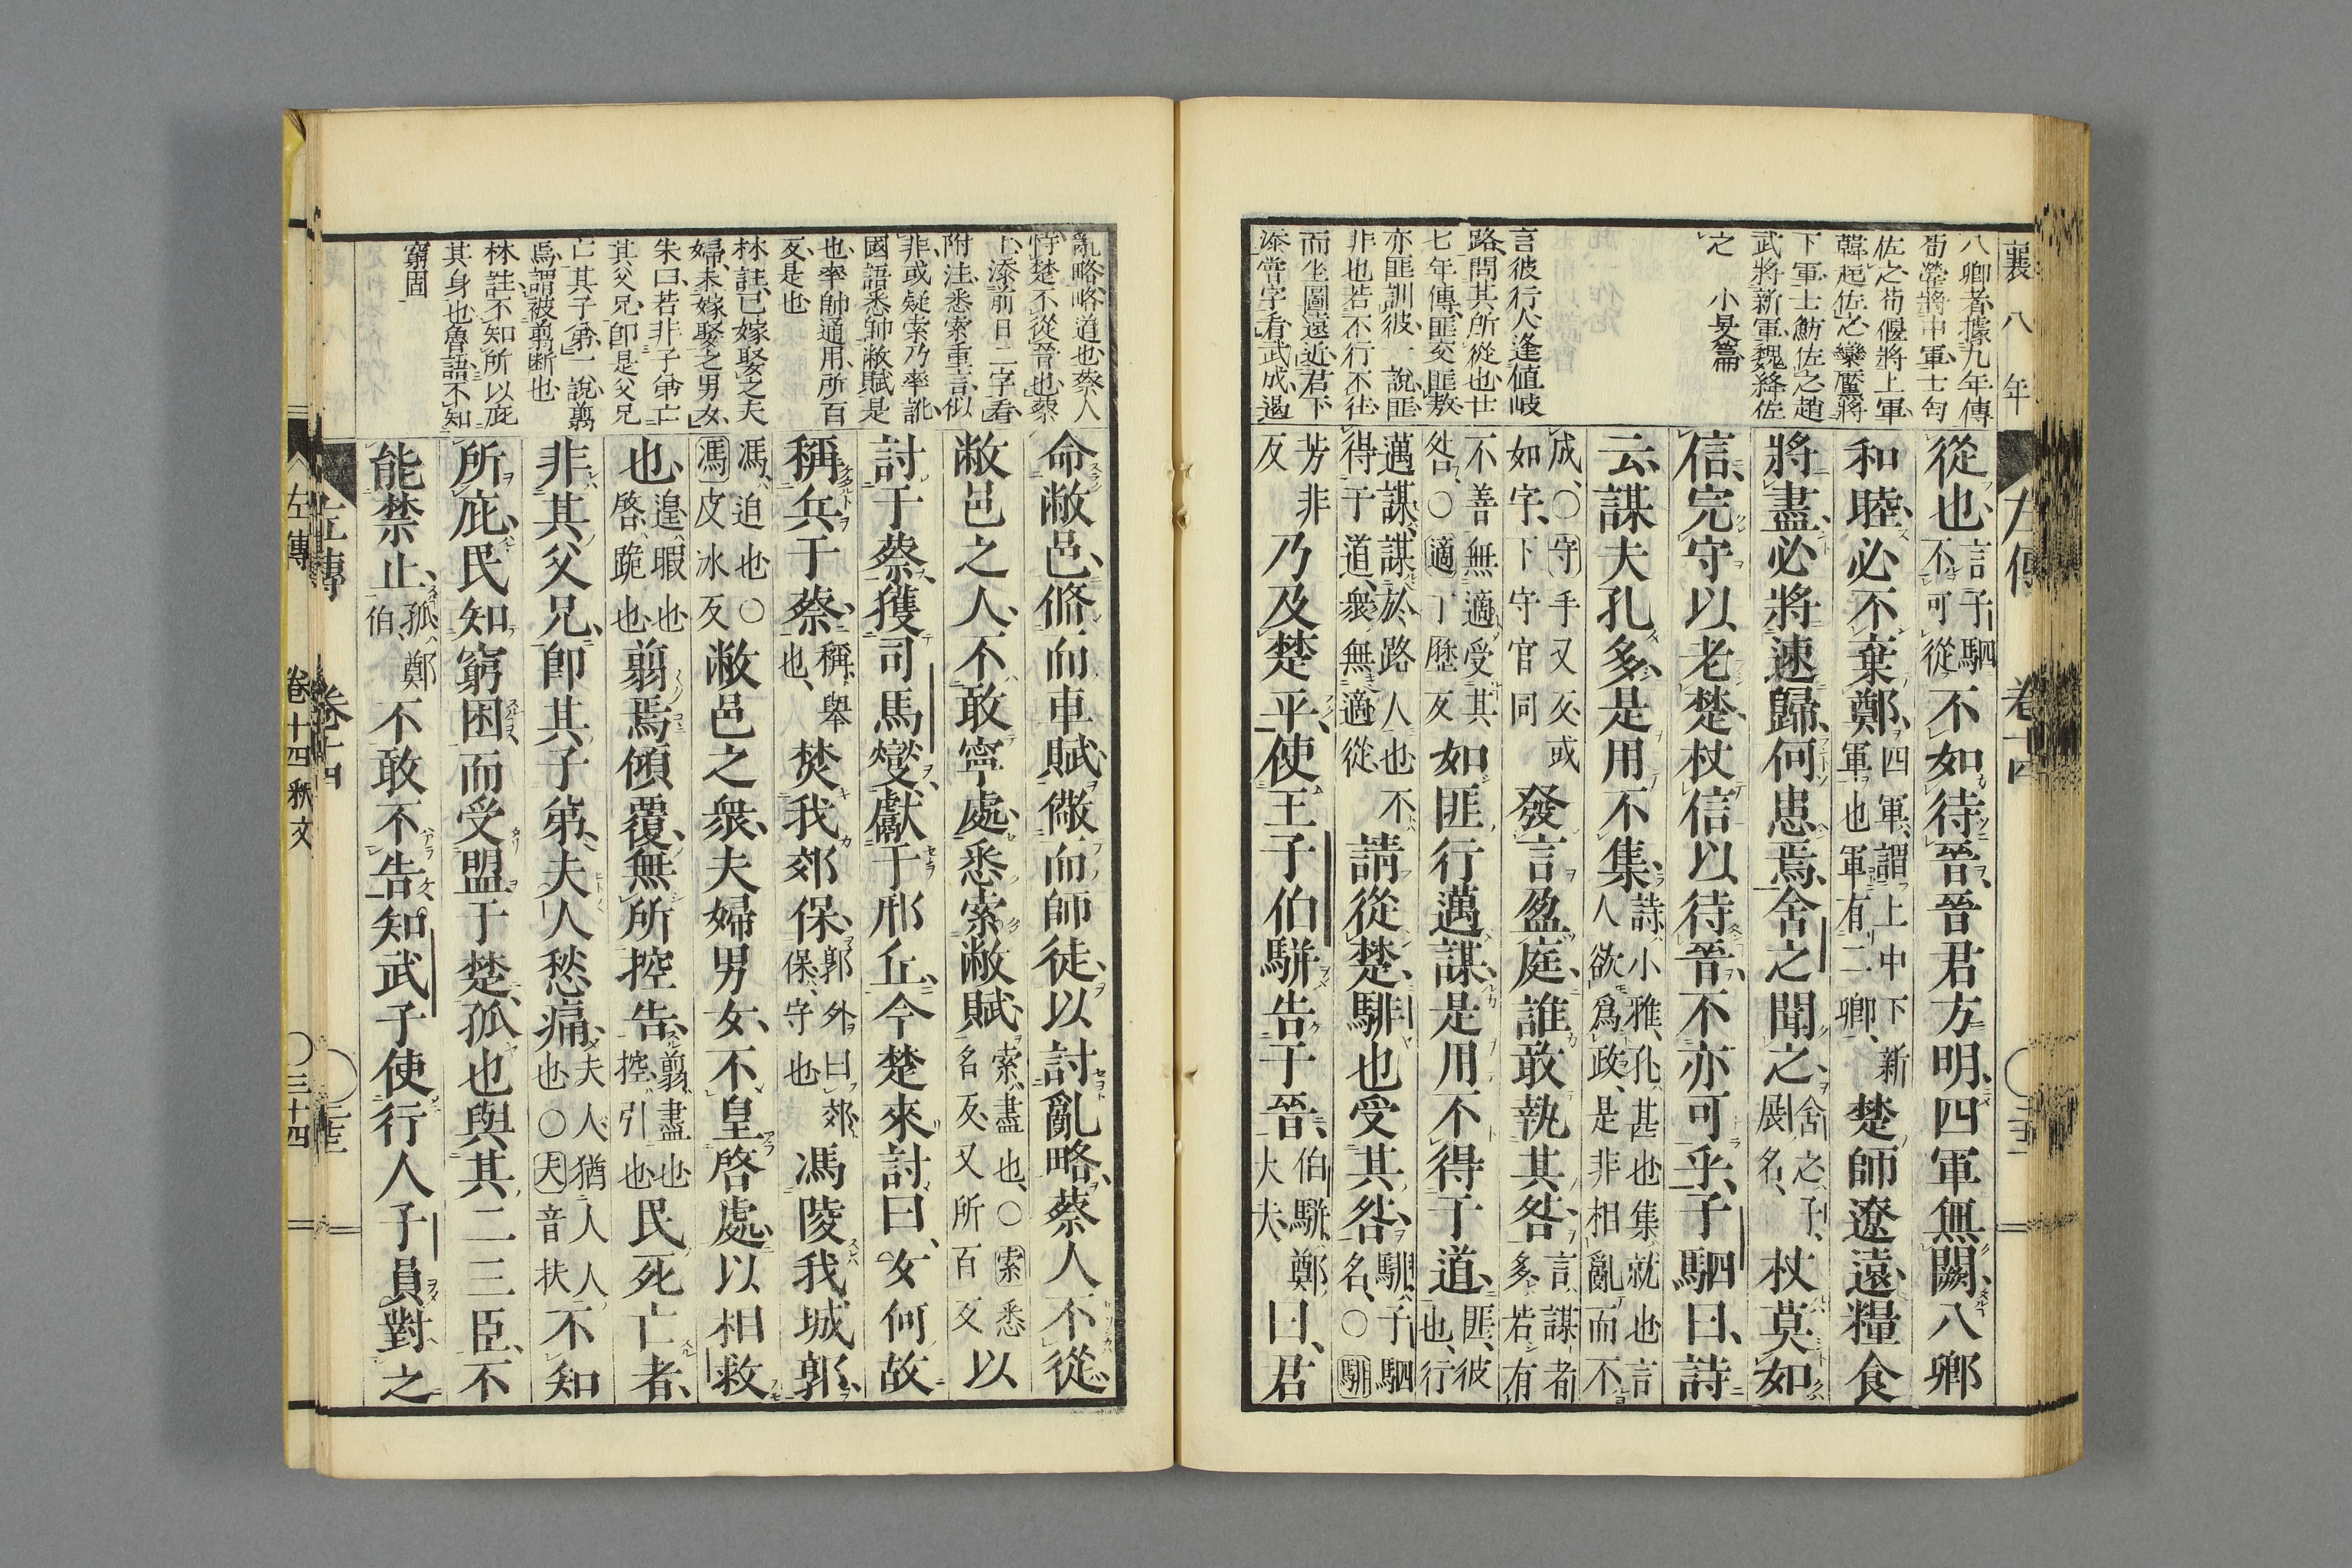 襄八年
左傳 卷十四
八卿者據九年傳
荀罃將中軍士匄
佐之荀偃將上軍
韓起佐之欒黶將
下軍士魴佐之趙
武將新軍魏絳佐
之 小旻篇
言彼行人逢値岐
路問其所從也廿
七年傳匪交匪敖
亦匪訓彼一說匪
非也若不行不往
而坐圖遠近君下
添嘗字看武成遏
從也言子駟不可從不如待晉晉君方明四軍無闕八卿
和睦必不棄鄭四軍謂上中下新軍也軍有二卿楚師遼遠糧食
將盡必將速歸何患焉舍之聞之舍之子展名杖莫如
信完守以老楚杖信以待晉不亦可乎子駟曰詩
云謀夫孔多是用不集詩小雅孔甚也集就也言人欲爲政是非相亂而不
成○守手又反或如字下守官同發言盈庭誰敢執其咎言謀者多若有
不善無適受其咎○適丁歷反如匪行邁謀是用不得于道匪彼也行
邁謀謀於路人也不得于道衆無適從請從楚騑也受其咎騑子駟名○騑
芳非反乃及楚平使王子伯騈告于晉伯騈鄭大夫曰君
亂略略道也蔡人
恃楚不從晉也蔡
上添前日二字看
附注悉索重言似
非或疑索乃率訛
國語悉帥敝賦是
也率帥通用所百
反是也
林註已嫁娶之夫
婦未嫁娶之男女
朱曰若非子弟亡
其父兄卽是父兄
亡其子弟一說翦
焉謂被翦斷也
林註不知所以庇
其身也魯語不知
窮固
命敝邑脩而車賦儆而師徒以討亂略蔡人不從
敝邑之人不敢寧處悉索敝賦索盡也○索悉名反又所百反以
討于蔡獲司馬燮獻于邢丘今楚來討曰女何故
稱兵于蔡稱舉也焚我郊保郭外曰郊保守也馮陵我城郭
馮迫也○馮皮冰反敝邑之衆夫婦男女不皇啓處以相救
也遑暇也啓跪也翦焉傾覆無所控告翦盡也控引也民死亡者
非其父兄卽其子弟夫人愁痛夫人猶人人也○夫音扶不知
所庇民知窮困而受盟于楚孤也與其二三臣不
能禁止孤鄭伯不敢不告知武子使行人子員對之
左傳 卷十四
左傳 卷十四 秩文 ○三十四